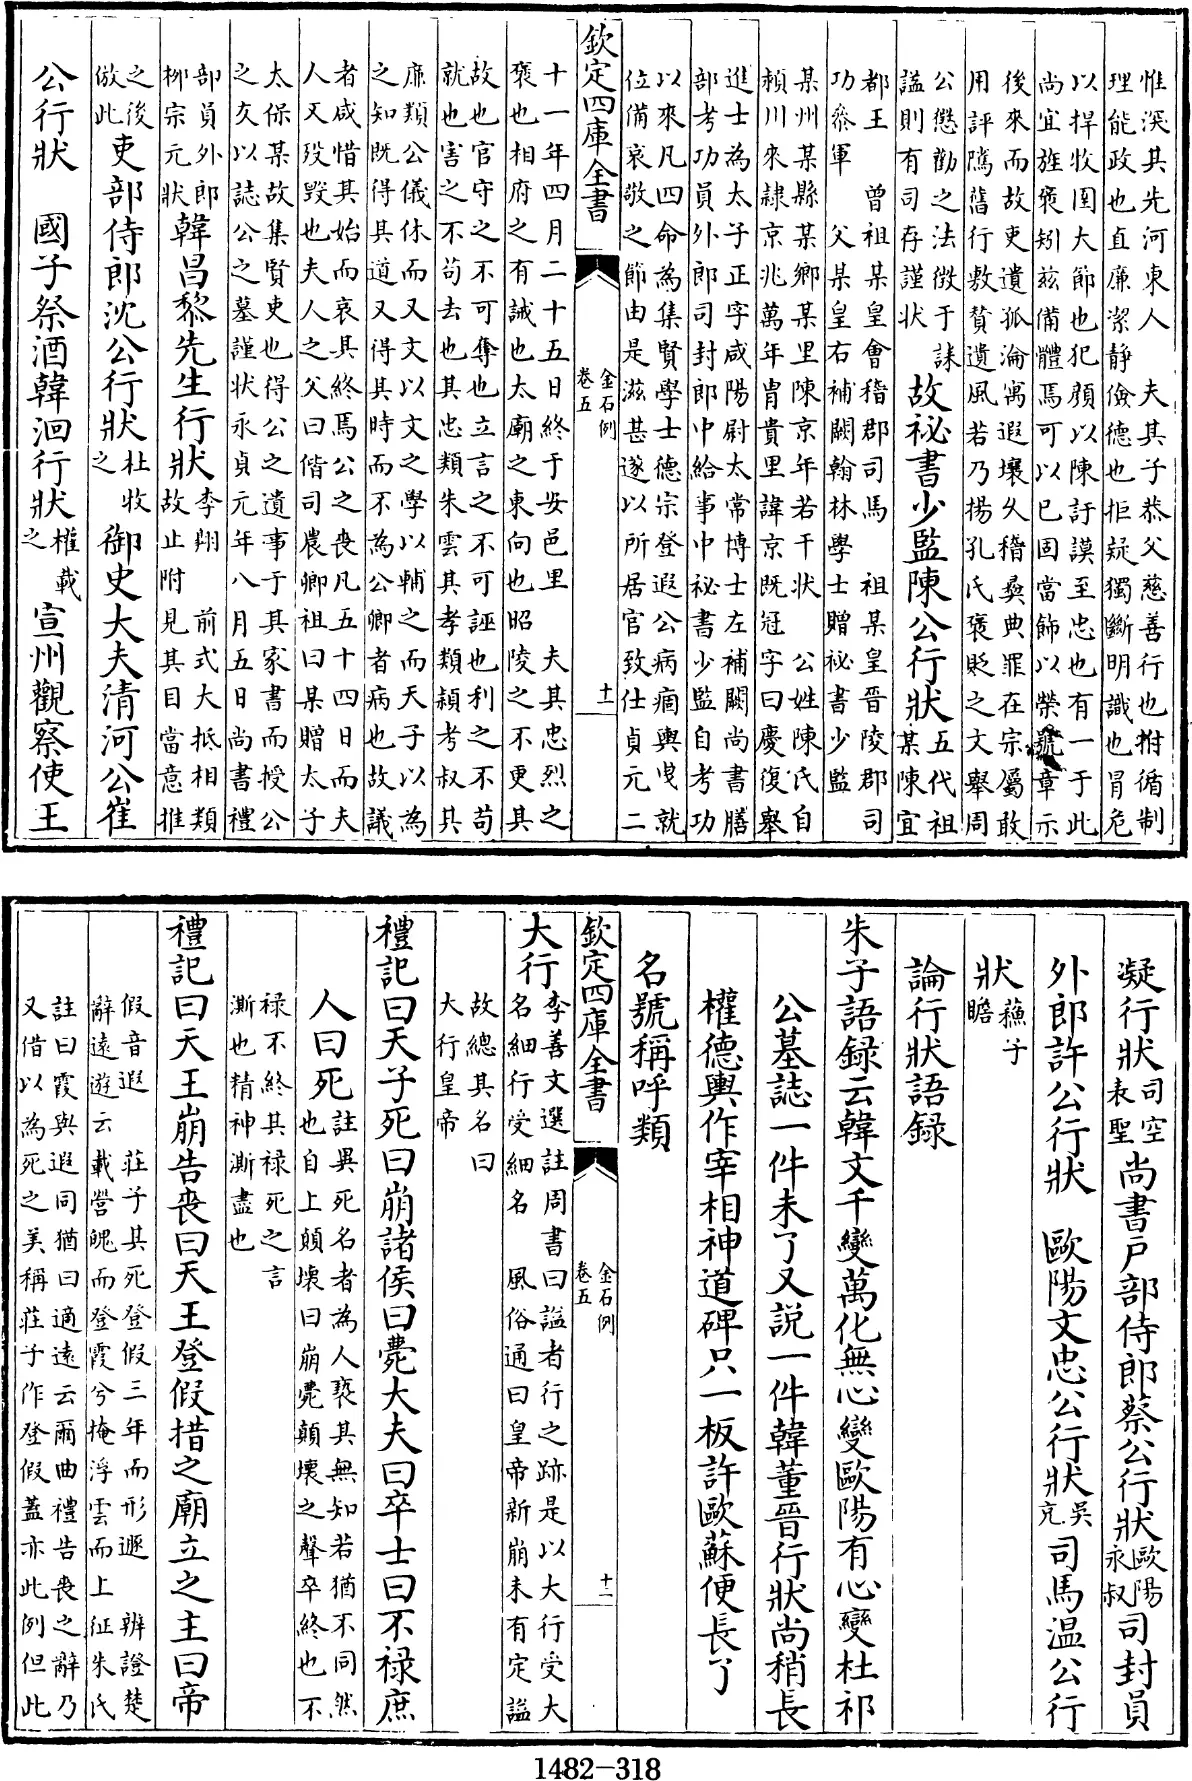 惟深其先河東人　夫其子恭父慈善行也拊循制
理能政也直廉潔靜儉德也拒疑獨斷明識也冒危
以捍牧圉大節也犯顏以陳訏謨至忠也有一于此
尚宜旌褒矧兹備體焉可以已固當飾以榮號章示
後來而故吏遺孤淪寓遐壤久稽奠典罪在宗屬敢
用評隲舊行敷贊遺風若乃揚孔氏褒貶之文舉周
公懲勸之法徴于誄諡則有司存謹狀　故祕書少監陳公行狀　五代祖某陳宜
都王　曾祖某皇會稽郡司馬　祖某皇晉陵郡司
功叅軍　父某皇右補闕翰林學士贈祕書少監
某州某縣某鄉某里陳京年若干狀　公姓陳氏自
頴川來隷京兆萬年胄貴里諱京既冠字曰慶復舉
進士為太子正字咸陽尉太常博士左補闕尚書膳
部考功員外郎司封郎中給事中祕書少監自考功
以來凡四命為集賢學士德宗登遐公病痼輿曵就
位備哀敬之節由是滋甚遂以所居官致仕貞元二
欽定四庫全書　金石例卷五　十一
十一年四月二十五日終于安邑里　夫其忠烈之
褒也相府之有誠也太廟之東向也昭陵之不更其
故也官守之不可奪也立言之不可誣也利之不苟
就也害之不苟去也其忠類朱雲其孝類頴考叔其
亷類公儀休而又文以文之學以輔之而天子以為
之知既得其道又得其時而不為公卿者病也故議
者咸惜其始而哀其終焉公之喪凡五十四日而夫
人又殁毀也夫人之父曰偕司農卿祖曰某贈太子
太保某故集賢吏也得公之遺事于其家書而授公
之友以誌公之墓謹狀永貞元年八月五日尚書禮
部員外郎柳宗元狀　韓昌黎先生行狀　李翺　前式大抵相類故止附見其目當意推
之後倣此　吏部侍郎沈公行狀　杜牧之　御史大夫清河公崔
公行狀　國子祭酒韓洄行狀　權載之　宣州觀察使王
凝行狀　司空表聖　尚書戸部侍郎蔡公行狀　歐陽永叔　司封員
外郎許公行狀　歐陽文忠公行狀　吳充　司馬温公行
狀　蘇子瞻
論行狀語録
朱子語録云韓文千變萬化無心變歐陽有心變杜祁
公墓誌一件未了又説一件韓董晉行狀尚稍長
權德輿作宰相神道碑只一板許歐蘇便長了
名號稱呼類
欽定四庫全書　金石例卷五　十二
大行　李善文選註周書曰諡者行之跡是以大行受大
名細行受細名　風俗通曰皇帝新崩未有定諡
故總其名曰
大行皇帝
禮記曰天子死曰崩諸侯曰薨大夫曰卒士曰不禄庶
人曰死　註異死名者為人褻其無知若猶不同然
也自上顛壞曰崩薨顛壞之聲卒終也不
禄不終其禄死之言
澌也精神澌盡也
禮記曰天王崩告喪曰天王登假措之廟立之主曰帝
假音遐　莊子其死登假三年而形遯　辨證楚
辭遠遊云　載營魄而登霞兮掩浮雲而上征朱氏
註曰霞與遐同猶曰適遠云爾曲禮告喪之辭乃
又借以為死之美稱莊子作登假蓋亦此例但此
1482-318